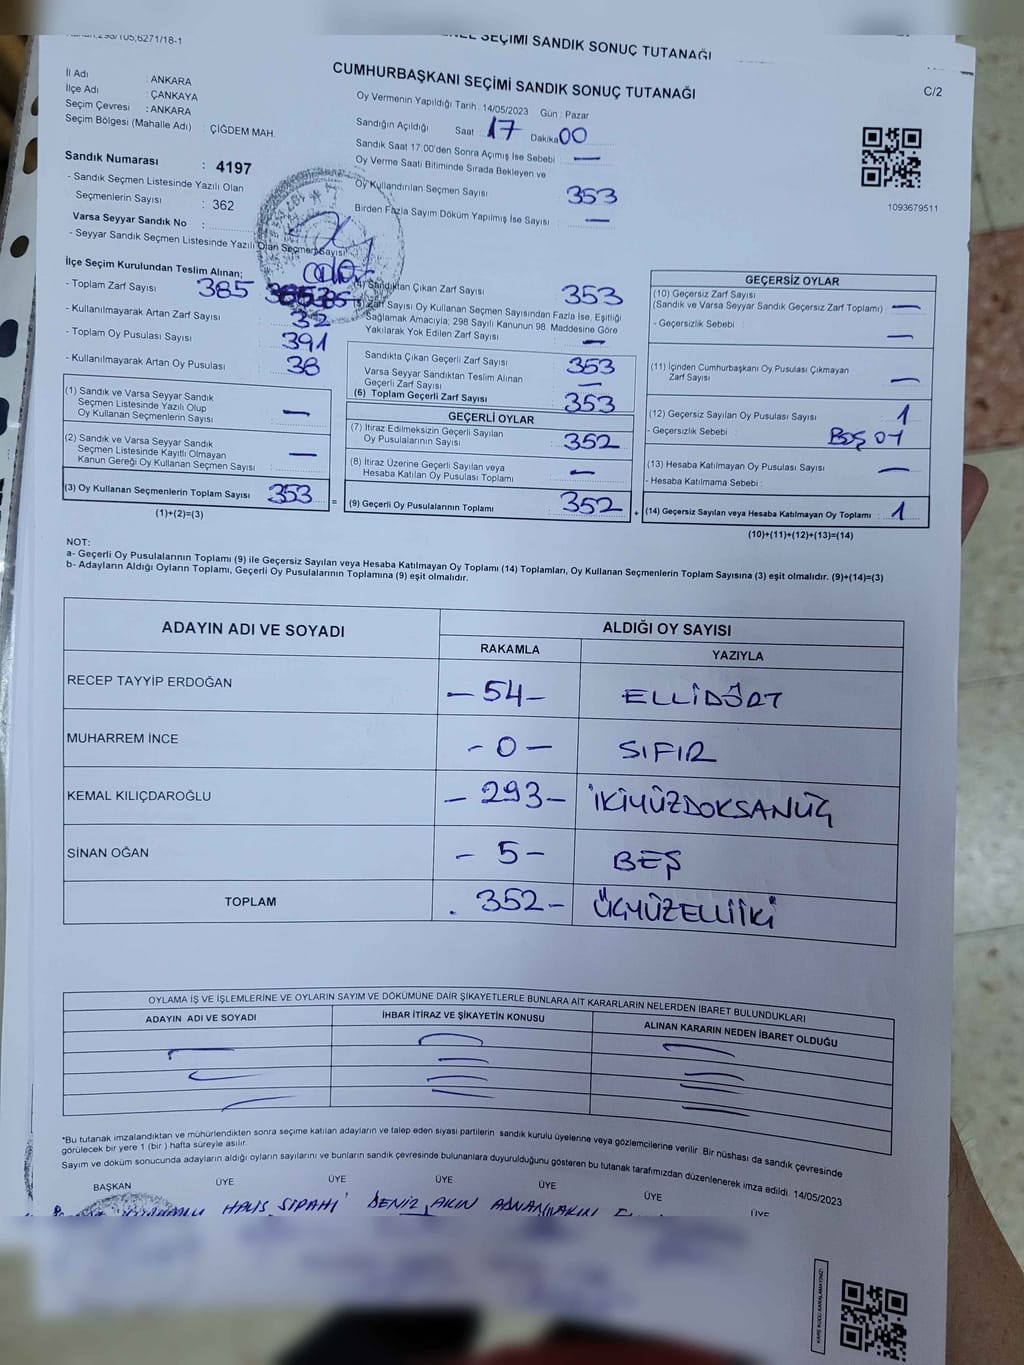 SEÇİMİ SANDIK SONUÇ TUTANAĞI
CUMHURBAŞKANI SEÇİMİ SANDIK SONUÇ TUTANAĞI
C/2
İl Adı : ANKARA
İlçe Adı : ÇANKAYA
Seçim Çevresi : ANKARA
Seçim Bölgesi (Mahalle Adı) : ÇİĞDEM MAH.
Oy Vermenin Yapıldığı Tarih : 14/05/2023 Gün : Pazar
Sandığın Açıldığı Saat : 17 Dakika 00
Sandık Saat 17:00'den Sonra Açımış İse Sebebi : —
Oy Verme Saati Bitiminde Sırada Bekleyen ve
Oy Kullandırılan Seçmen Sayısı 353
Birden Fazla Sayım Döküm Yapılmış İse Sayısı —
1093679511
Sandık Numarası : 4197
- Sandık Seçmen Listesinde Yazılı Olan
Seçmenlerin Sayısı : 362
Varsa Seyyar Sandık No :
- Seyyar Sandık Seçmen Listesinde Yazılı Olan Seçmen Sayısı
İlçe Seçim Kurulundan Teslim Alınan;
- Toplam Zarf Sayısı 385
- Kullanılmayarak Artan Zarf Sayısı 32
- Toplam Oy Pusulası Sayısı 391
- Kullanılmayarak Artan Oy Pusulası 38
(1) Sandık ve Varsa Seyyar Sandık
Seçmen Listesinde Yazılı Olup
Oy Kullanan Seçmenlerin Sayısı —
(2) Sandık ve Varsa Seyyar Sandık
Seçmen Listesinde Kayıtlı Olmayan
Kanun Gereği Oy Kullanan Seçmen Sayısı —
(3) Oy Kullanan Seçmenlerin Toplam Sayısı 353 =
(1)+(2)=(3)
(4) Sandıktan Çıkan Zarf Sayısı 353
(5) Zarf Sayısı Oy Kullanan Seçmen Sayısından Fazla İse, Eşitliği
Sağlamak Amacıyla; 298 Sayılı Kanunun 98. Maddesine Göre
Yakılarak Yok Edilen Zarf Sayısı : —
Sandıkta Çıkan Geçerli Zarf Sayısı 353
Varsa Seyyar Sandıktan Teslim Alınan
Geçerli Zarf Sayısı —
(6) Toplam Geçerli Zarf Sayısı 353
GEÇERLİ OYLAR
(7) İtiraz Edilmeksizin Geçerli Sayılan
Oy Pusulalarının Sayısı 352
(8) İtiraz Üzerine Geçerli Sayılan veya
Hesaba Katılan Oy Pusulası Toplamı —
(9) Geçerli Oy Pusulalarının Toplamı 352 +
GEÇERSİZ OYLAR
(10) Geçersiz Zarf Sayısı
(Sandık ve Varsa Seyyar Sandık Geçersiz Zarf Toplamı) —
- Geçersizlik Sebebi —
(11) İçinden Cumhurbaşkanı Oy Pusulası Çıkmayan
Zarf Sayısı —
(12) Geçersiz Sayılan Oy Pusulası Sayısı 1
- Geçersizlik Sebebi : BOŞ OY
(13) Hesaba Katılmayan Oy Pusulası Sayısı —
- Hesaba Katılmama Sebebi :
(14) Geçersiz Sayılan veya Hesaba Katılmayan Oy Toplamı : 1
(10)+(11)+(12)+(13)=(14)
NOT:
a- Geçerli Oy Pusulalarının Toplamı (9) ile Geçersiz Sayılan veya Hesaba Katılmayan Oy Toplamı (14) Toplamları, Oy Kullanan Seçmenlerin Toplam Sayısına (3) eşit olmalıdır. (9)+(14)=(3)
b- Adayların Aldığı Oyların Toplamı, Geçerli Oy Pusulalarının Toplamına (9) eşit olmalıdır.
ADAYIN ADI VE SOYADI ALDIĞI OY SAYISI
RAKAMLA YAZIYLA
RECEP TAYYİP ERDOĞAN — 54 — ELLİDÖRT
MUHARREM İNCE - 0 — SIFIR
KEMAL KILIÇDAROĞLU — 293 — İKİYÜZDOKSANÜÇ
SİNAN OĞAN — 5 — BEŞ
TOPLAM 352 — ÜÇYÜZELLİİKİ
OYLAMA İŞ VE İŞLEMLERİNE VE OYLARIN SAYIM VE DÖKÜMÜNE DAİR ŞİKAYETLERLE BUNLARA AİT KARARLARIN NELERDEN İBARET BULUNDUKLARI
ADAYIN ADI VE SOYADI İHBAR İTİRAZ VE ŞİKAYETİN KONUSU ALINAN KARARIN NEDEN İBARET OLDUĞU
*Bu tutanak imzalandıktan ve mühürlendikten sonra seçime katılan adayların ve talep eden siyasi partilerin sandık kurulu üyelerine veya gözlemcilerine verilir .Bir nüshası da sandık çevresinde
görülecek bir yere 1 (bir ) hafta süreyle asılır.
Sayım ve döküm sonucunda adayların aldığı oyların sayılarını ve bunların sandık çevresinde bulunanlara duyurulduğunu gösteren bu tutanak tarafımızdan düzenlenerek imza edildi. 14/05/2023
BAŞKAN ÜYE ÜYE ÜYE ÜYE ÜYE ÜYE
HALİS SİPAHİ DENİZ AKIN ADNAN AKIN